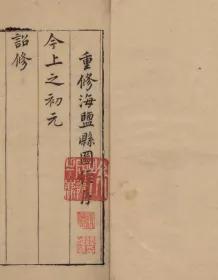 重修海鹽縣圖經序
今上之初元
詔修